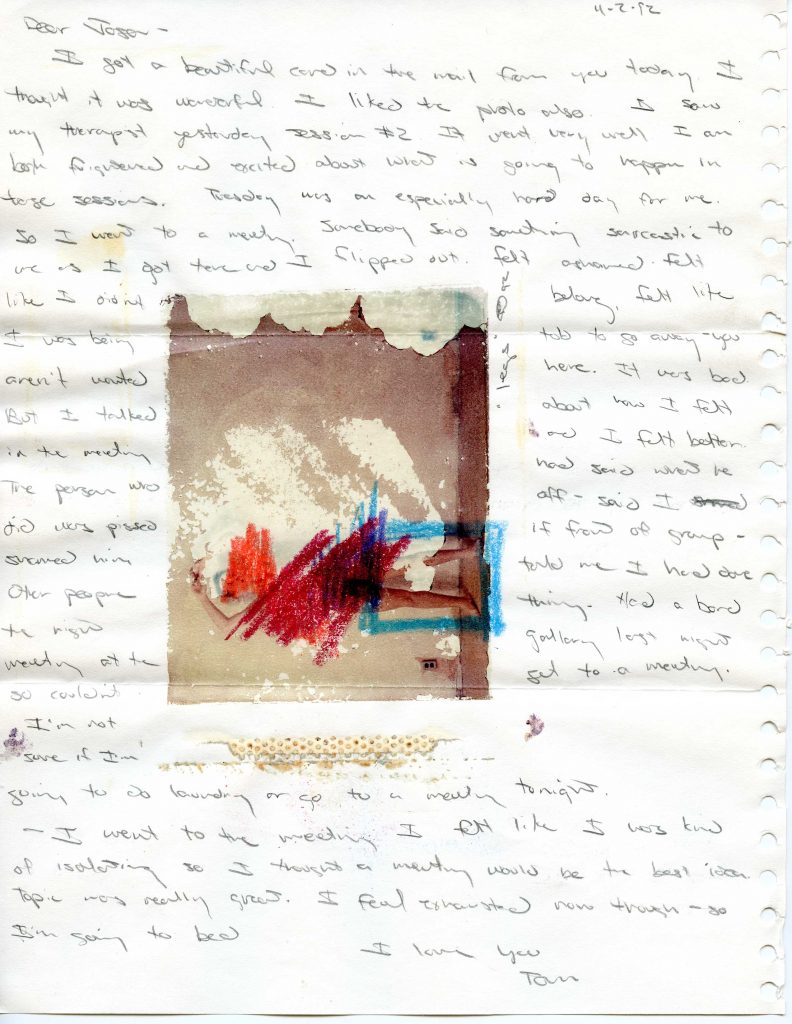 4-2-92
Dear Jason -
I got a beautiful card in the mail from you today. I
thought it was wonderful. I liked the photo also. I saw
my therapist yesterday session #2. It went very well. I am
both frightened and excited about what is going to happen in
these sessions. Tuesday was an especially hard day for me.
So I went to a meeting. Somebody said something sarcastic to
me as I got there and I flipped out. felt ashamed. felt
like I didnt belong, felt like
I was being told to go away - you
aren't wanted here. It was bad
But I talked about how I felt
in the meeting and I felt better.
The person who had said what he
did was pissed off - said I
shamed him if front of group -
Other people told me I had done
the right thing. Had a board
meeting at the gallery last night
so couldn't get to a meeting.
I'm not
sure if I'm
going to do laundry or go to a meeting tonight.
- I went to the meeting I felt like I was kind
of isolating so I thought a meeting would be the best idea.
Topic was really great. I feel exhausted now though - so
I'm going to bed
I love you
Tom